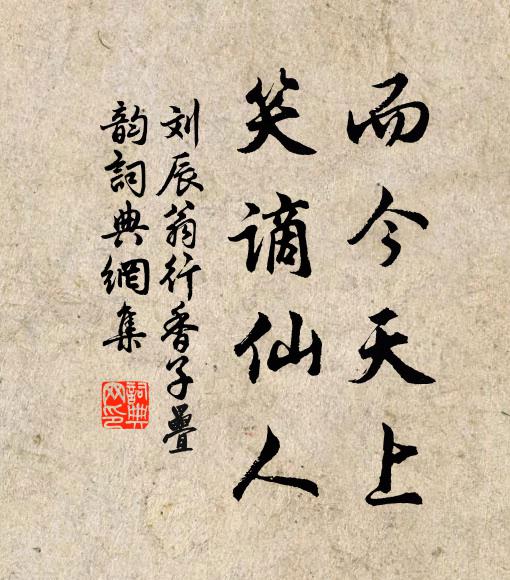 而今天上
笑谪仙人
刘辰翁行香子疊
韵詞典網集
詞典
网印